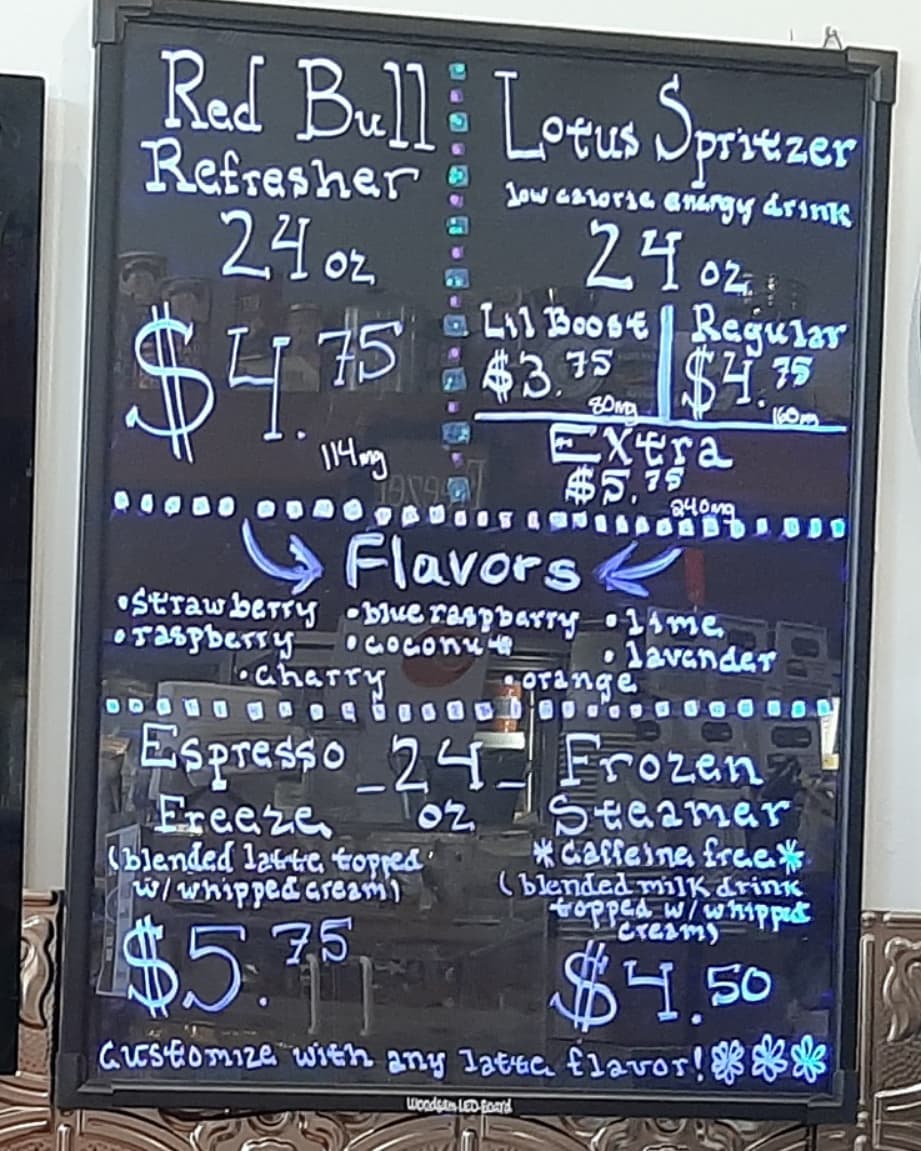 Red Bull
Refresher
24 oz
$4.75
114mg
Lotus Spritzer
low calorie energy drink
24 oz
Lil Boost
$3.75
80mg
Regular
$4.75
160m
Extra
$5.75
240mg
Flavors
•strawberry •blue raspberry •lime
•raspberry •coconut •lavender
•cherry •orange
Espresso
Freeze
-24-
oz
(blended latte topped
w/whipped cream)
$5.75
Frozen
Steamer
*caffeine free*
(blended milk drink
topped w/whipped
cream)
$4.50
Customize with any latte flavor!
Woodsam LED Board